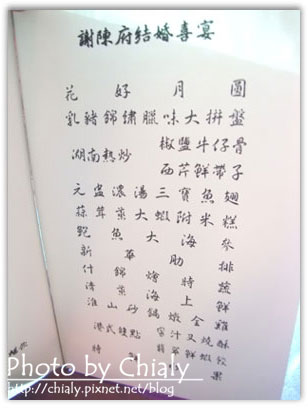 謝陳府結婚喜宴
花好月圓
乳豬錦繡臘味大拼盤
椒鹽牛仔骨
湖南热炒
西芹鮮帶子
元盅濃湯三寶魚翅
蒜茸蒸大蝦附米糕
鮑魚大海參
新華肋排
什錦燴特蔬
清蒸海上鮮
淮山砂鍋燉全雞
汁叉燒酥
港式雙點
鮮蝦餃
特
果
Photo by Chialy
http://chialy.pixnet.net/blog